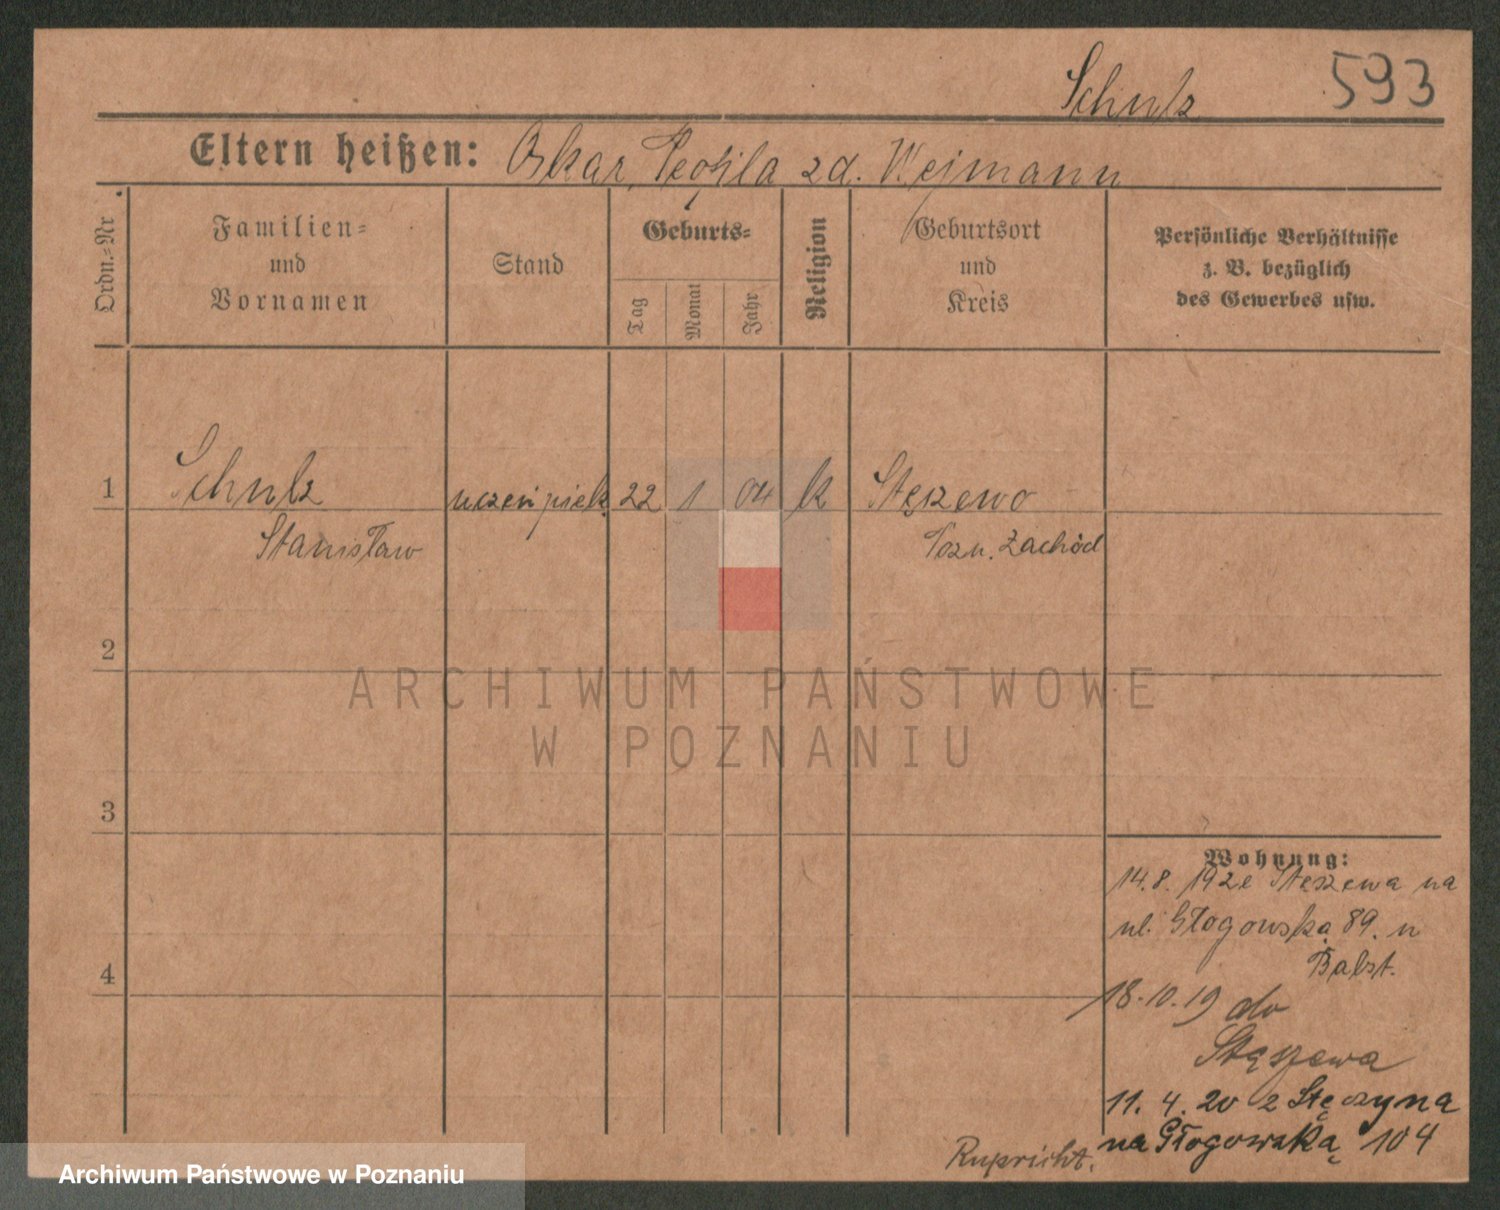 Schulz 593
Eltern heißen: Oskar, Teofila zd. Wejmann
Ordn.-Nr
Familien-
und
Vornamen
Stand
Geburts-
Tag
Monat
Jahr
Religion
Geburtsort
und
Kreis
Persönliche Verhältnisse
z. B. bezüglich
des Gewerbes usw.
1 Schulz uczeń piek. 22 1 04 k Stęszewo
Stanisław Pozn. Zachód
2
3
4
Wohnung:
14.8. 19 z Stęszewa na
ul. Głogowską 89. u
Babst.
18.10.19 do
Stęszewa
11. 4. 20 z Stęczyna
na Głogowską 104
Rupricht.
ARCHIWUM PAŃSTWOWE
W POZNANIU
Archiwum Państwowe w Poznaniu